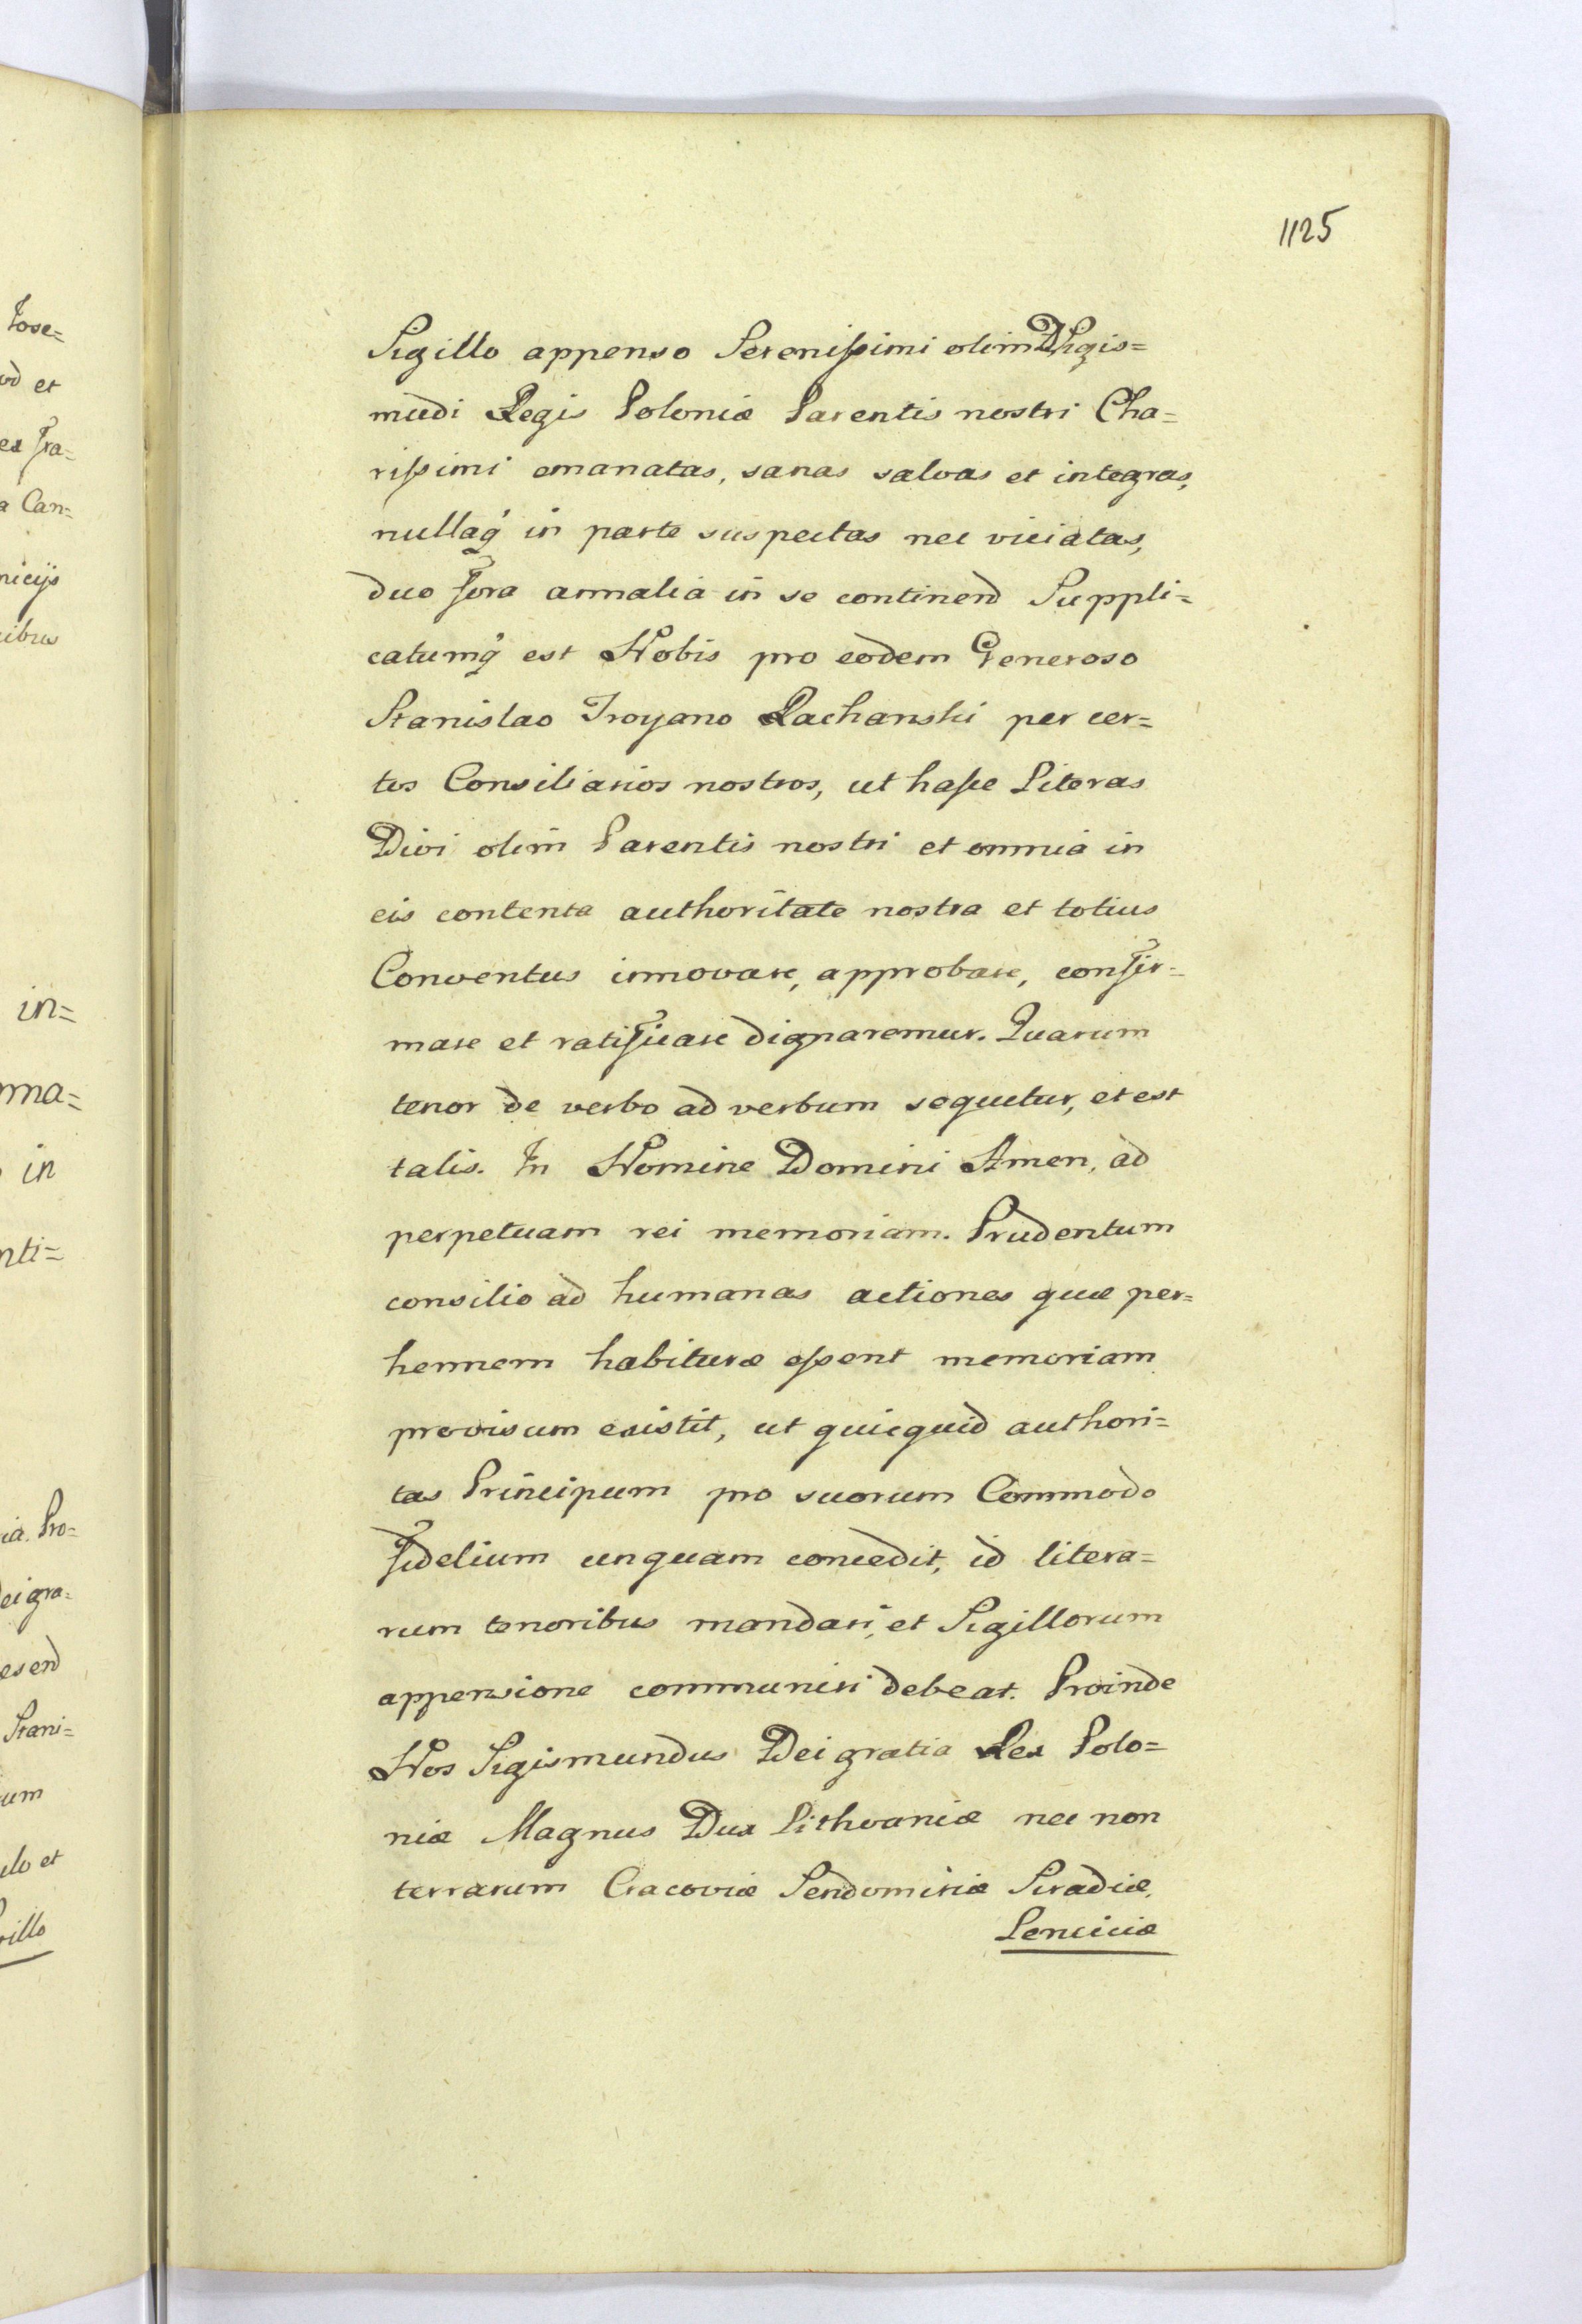 1125
Sigillo appenso Serenissimi olim D Sigis=
mudi Regis Poloniæ Parentis nostri Cha=
rissimi emanatas, sanas salvas et integras,
nullaq́ in parte suspectas nec viciatas,
duo fora annalia in se continend Suppli=
catumq́ est Nobis pro eodem Generoso
Stanislao Troyano Rachanski per cer=
tos Consiliarios nostros, ut hasce Literas
Divi olim Parentis nostri et omnia in
eis contenta authoritate nostra et totius
Conventus innovare, approbare, confir=
mare et ratificare dignaremur. Quarum
tenor de verbo ad verbum sequetur, et est
talis. In Nomine Domini Amen, ad
perpetuam rei memoriam. Prudentum
consilio ad humanas actiones quæ per=
hennem habituræ essent memoriam
provisum existit, ut quicquid authori=
tas Principum pro suorum Commodo
fidelium unquam concedit, id litera=
rum tenoribus mandari, et Sigillorum
appensione communiri debeat. Proinde
Nos Sigismundus Dei gratia Rex Polo=
niæ Magnus Dux Lithvaniæ nec non
terrarum Cracoviæ Sendomiriæ Siradiæ,
Lenciciæ
Jose=
od et
ex Fra=
a Can=
niciis
ibus
in=
ma=
in
nti=
ia. Pro=
Dei gra=
esend
Stani=
um
ulo et